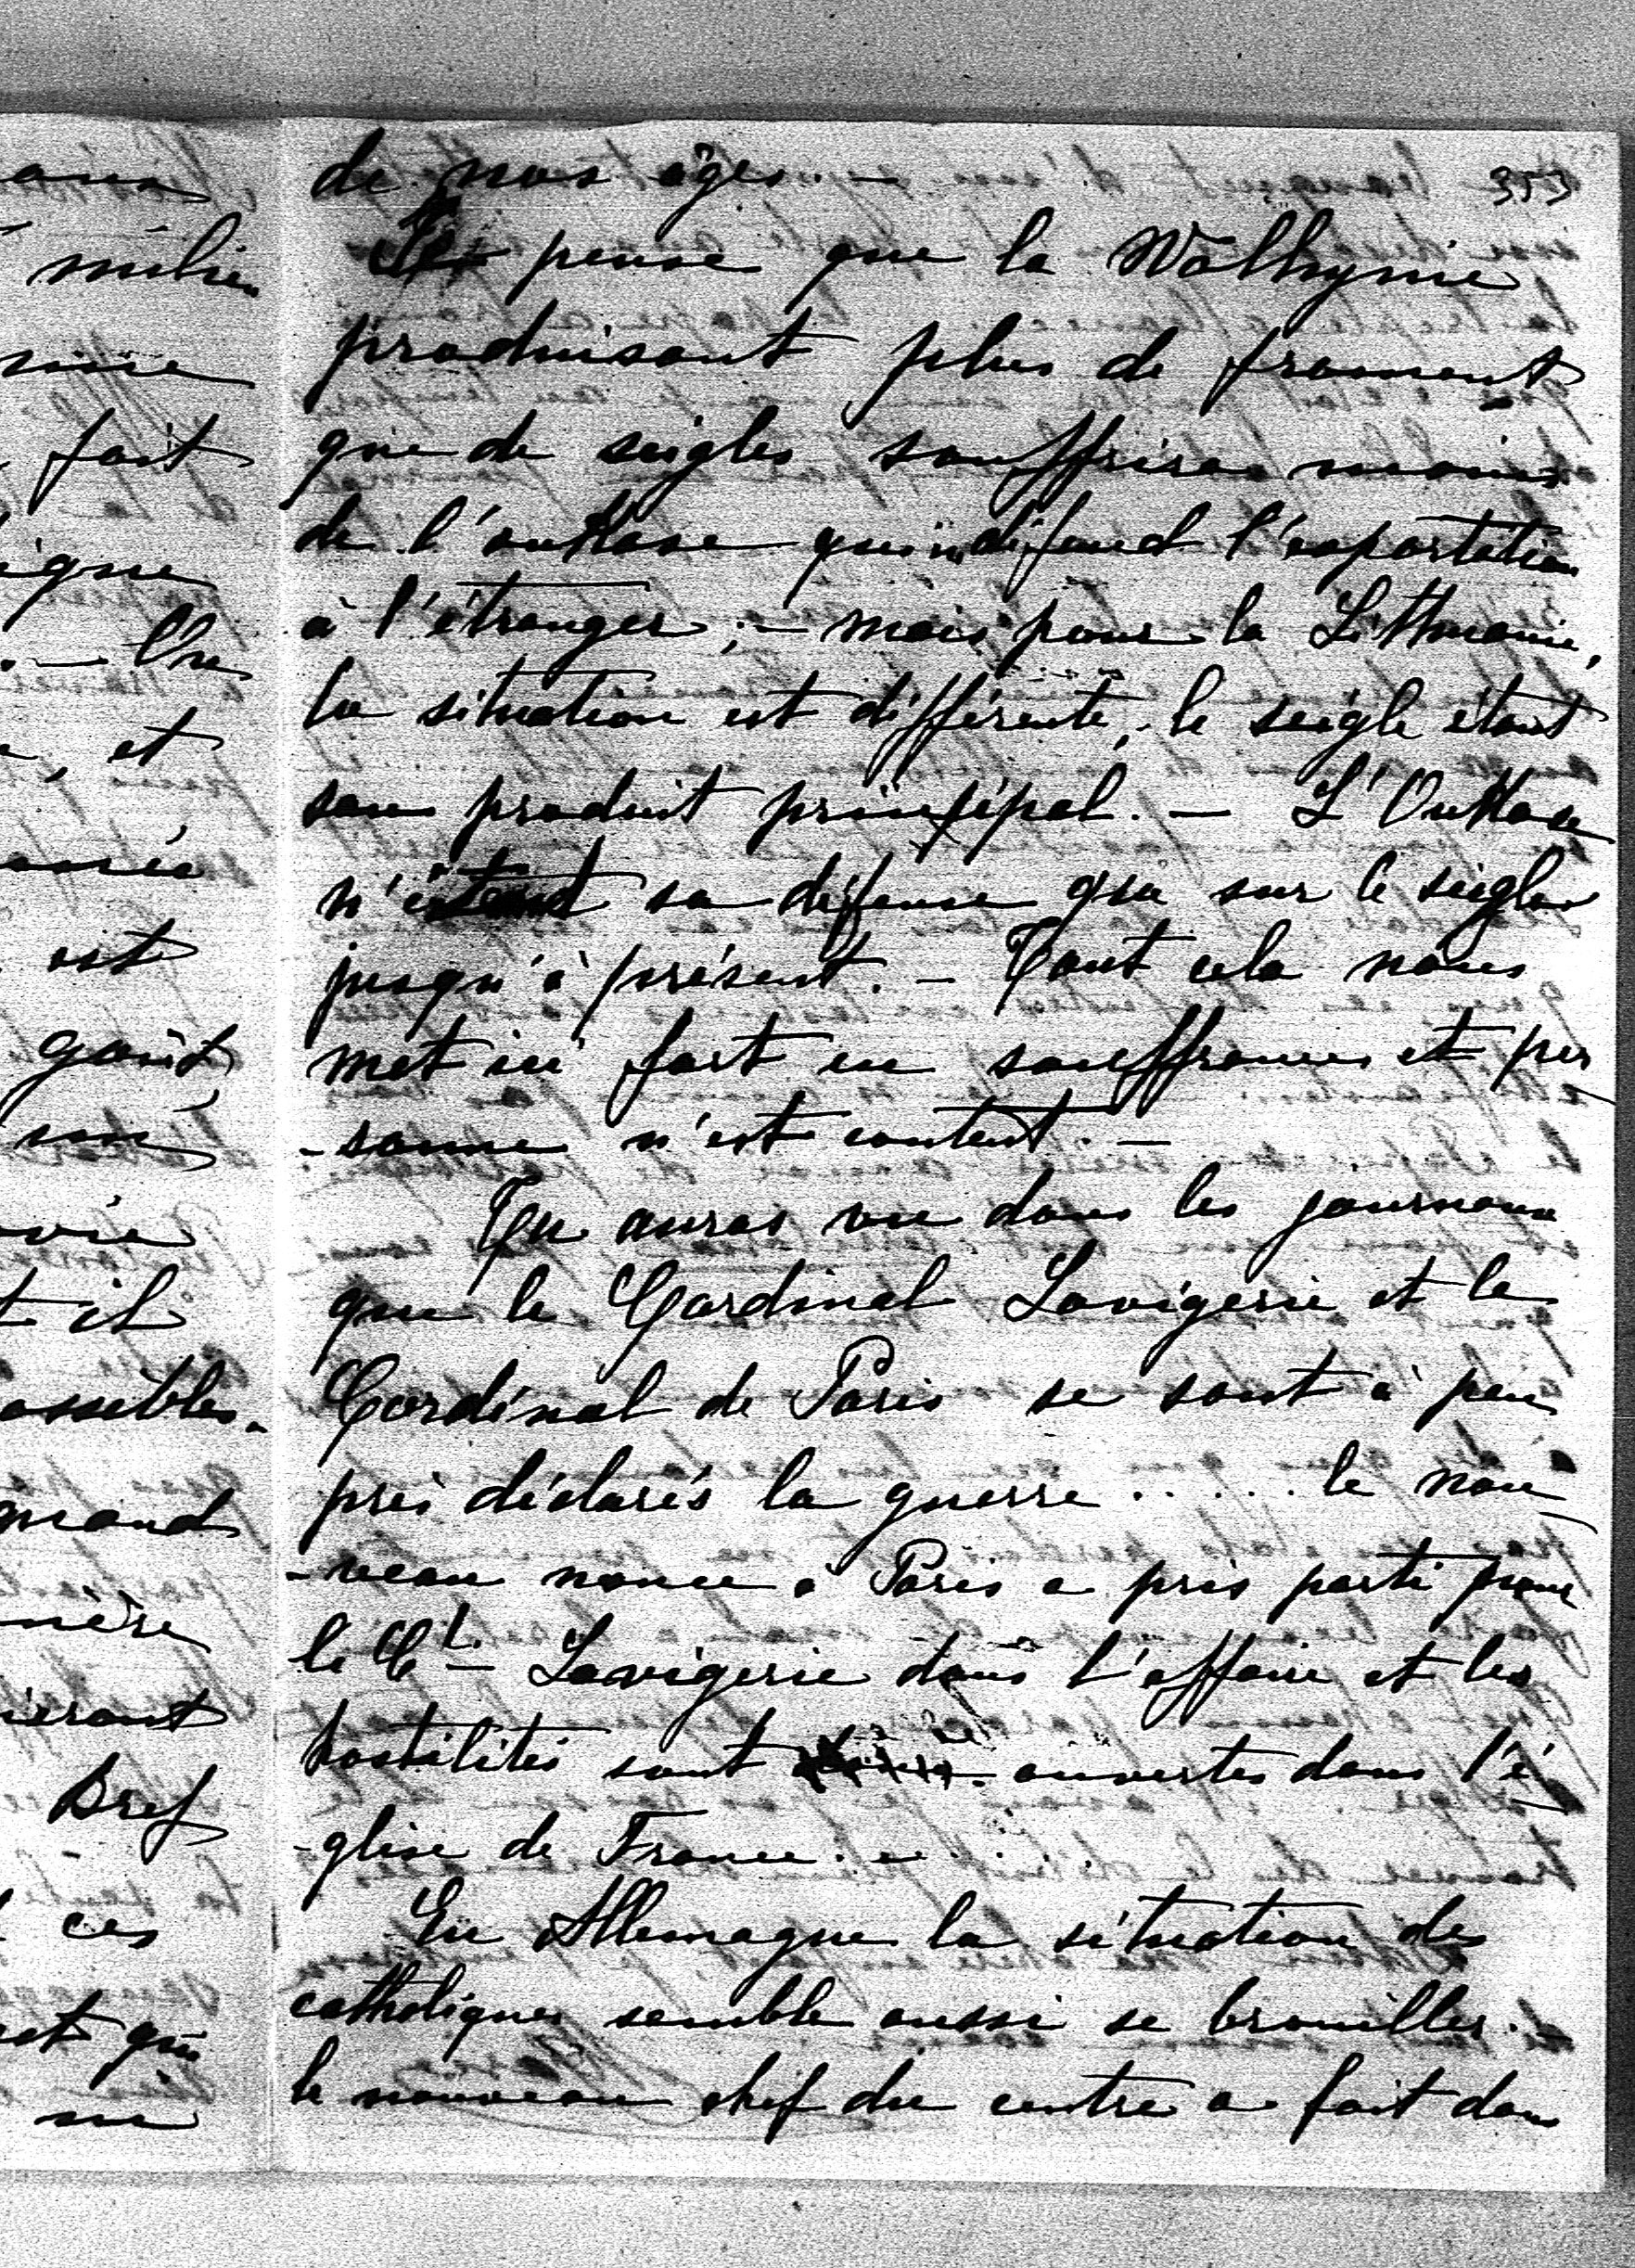 353
de nos âges. —
Je pense que la Wolhynie
produisant plus de froment
que de seigles souffrira moins
de l'oukase qui défend l'exportation
à l'étranger ; — mais pour la Litthuanie,
la situation est différente, le seigle étant
son produit principal. — L'Oukase
n'étend sa défense que sur le seigle
jusqu'à présent. — Tout cela nous
met ici fort en souffrance et per
-sonne n'est content. —
Tu auras vu dans les journaux
que le Cardinal Lavigerie et le
Cardinal de Paris se sont à peu
près déclarés la guerre ..... le nou
-veau nonce à Paris a pris parti pour
le Cl — Lavigerie dans l'affaire et les
hostilités sont ouvertes dans l'é
-glise de France. — . . . .
En Allemagne la situation des
catholiques semble aussi se brouiller. —
le nouveau chef du centre a fait dans
milieu
fait
igne
. — Une
, et
est
goût,
t il
ossibles.
mand
mère
ieront
Bref
ces
et qui
ne